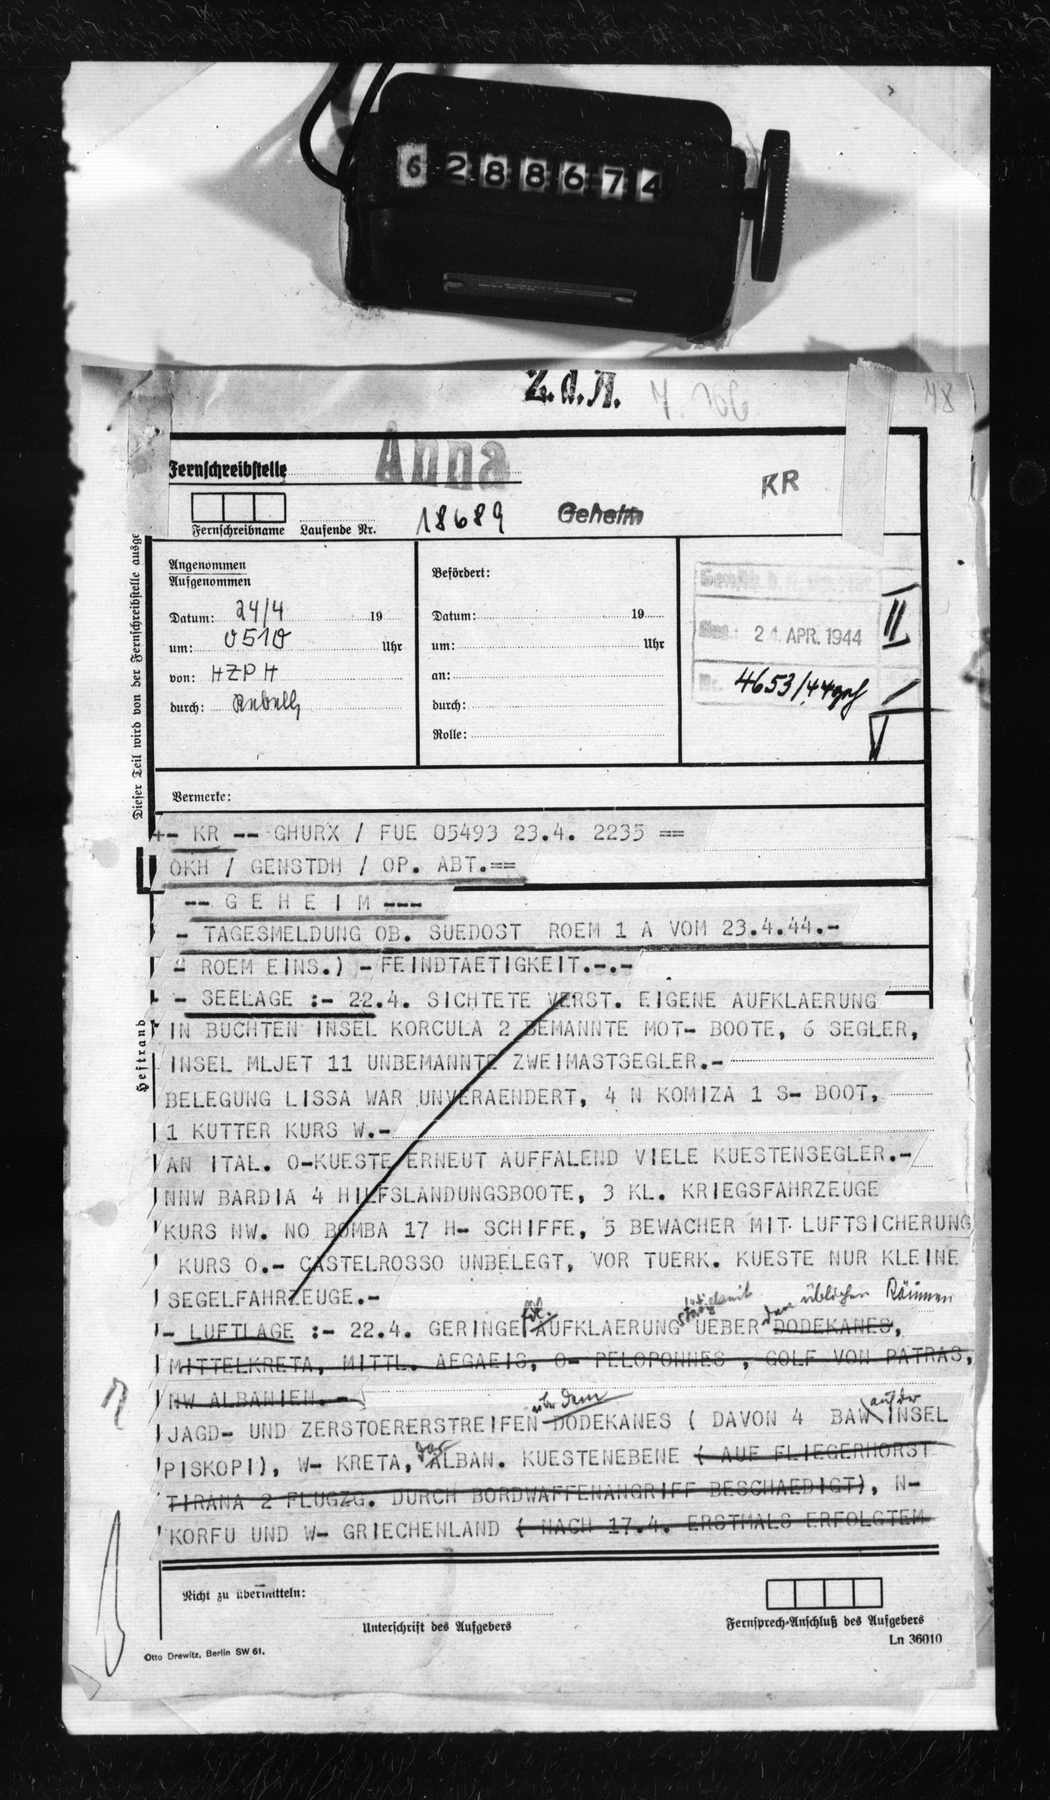 6288674
Z.d.A.
48
Fernschreibstelle
Anna
KR
Geheim
18689
Fernschreibname Laufende Nr.
Dieser Teil wird von der Fernschreibstelle ausge
Angenommen
Aufgenommen
Datum: 24/4 19
um: 0510 Uhr
von: HZPH
durch:
Befördert:
Datum: 19
um: Uhr
an:
durch:
Rolle:
24. APR. 1944
II
Nr. 4653/44
Vermerke:
+- KR -- GHURX / FUE 05493 23.4. 2235 ==
OKH / GENSTDH / OP. ABT.==
-- G E H E I M ---
- TAGESMELDUNG OB. SUEDOST ROEM 1 A VOM 23.4.44.-
- ROEM EINS.) - FEINDTAETIGKEIT.-.-
- SEELAGE :- 22.4. SICHTETE VERST. EIGENE AUFKLAERUNG
IN BUCHTEN INSEL KORCULA 2 BEMANNTE MOT- BOOTE, 6 SEGLER,
INSEL MLJET 11 UNBEMANNTE ZWEIMASTSEGLER.-
BELEGUNG LISSA WAR UNVERAENDERT, 4 N KOMIZA 1 S- BOOT,
1 KUTTER KURS W.-
AN ITAL. O-KUESTE ERNEUT AUFFALEND VIELE KUESTENSEGLER.-
NNW BARDIA 4 HILFSLANDUNGSBOOTE, 3 KL. KRIEGSFAHRZEUGE
KURS NW. NO BOMBA 17 H- SCHIFFE, 5 BEWACHER MIT LUFTSICHERUNG
KURS O.- CASTELROSSO UNBELEGT, VOR TUERK. KUESTE NUR KLEINE
SEGELFAHRZEUGE.-
den üblichen Räumen
- LUFTLAGE :- 22.4. GERINGE AUFKLAERUNG UEBER DODEKANES,
MITTELKRETA, MITTL. AEGAEIS, O- PELOPONNES , GOLF VON PATRAS,
NW ALBANIEN. -
über dem
auf der
JAGD- UND ZERSTOERERSTREIFEN DODEKANES ( DAVON 4 BAW INSEL
der
PISKOPI), W- KRETA, ALBAN. KUESTENEBENE ( AUF FLIEGERHORST
TIRANA 2 FLUGZG. DURCH BORDWAFFENANGRIFF BESCHAEDIGT), N-
KORFU UND W- GRIECHENLAND ( NACH 17.4. ERSTMALS ERFOLGTEM
Heftrand
Nicht zu übermitteln:
Unterschrift des Aufgebers
Fernsprech-Anschluß des Aufgebers
Otto Drewitz, Berlin SW 61.
Ln 36010